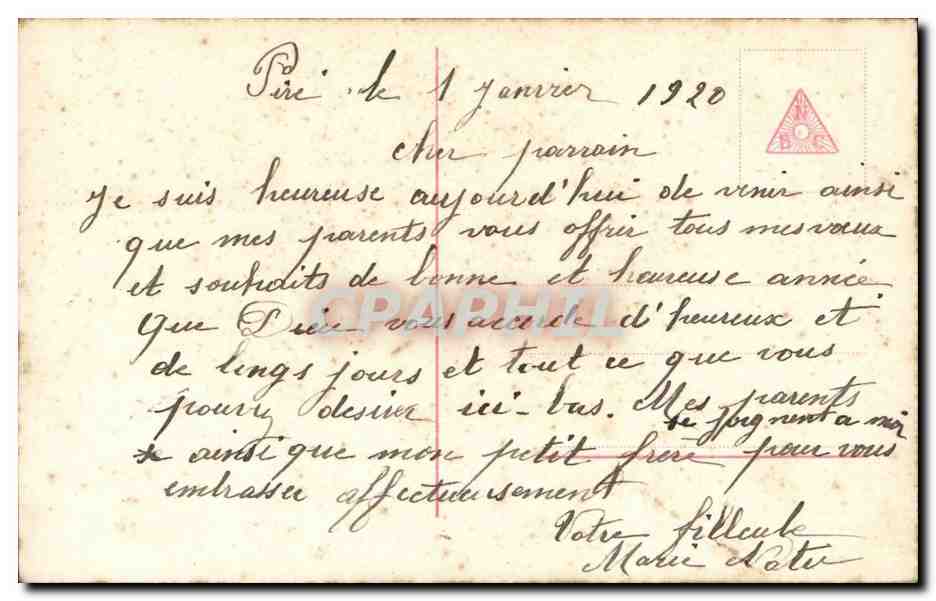 Piré le 1 Janvier 1920
cher parrain
Je suis heureuse aujourd'hui de venir ainsi
que mes parents vous offrir tous mes vœux
et souhaits de bonne et heureuse année
Que Dieu vous accorde d'heureux et
de longs jours et tout ce que vous
pourrez desirer ici-bas. Mes parents
se joignent a moi
ainsi que mon petit frère pour vous
embrasser affectueusement
Votre filleule
Marie
CPAPHIL
U N
B C